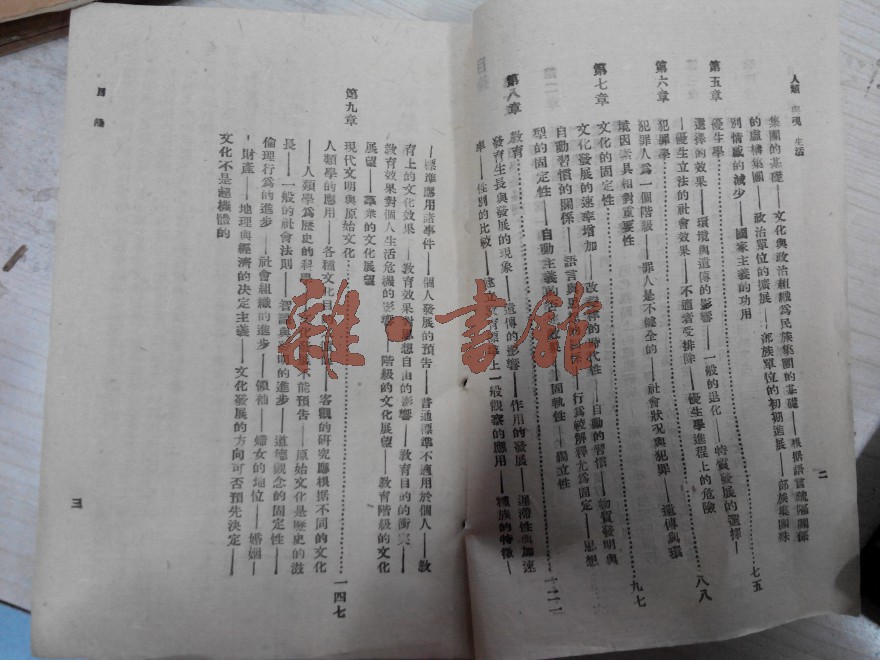 人類與現 生活
集團的基礎——文化與政治組織爲民族集團的基礎——根據語言疏隔關係
的虛構集團——政治單位的擴展——部族單位的初期進展——部族集團殊
別情感的減少——國家主義的功用
第五章 優生學……七五
選擇的效果——環境與遺傳的影響——一般的退化——特質發展的選擇—
—優生立法的社會效果——不適者受排除——優生學進程上的危險
第六章 犯罪學……八八
犯罪人爲一個階級——罪人是不健全的——社會狀況與犯罪——遺傳與環
境因素具相對重要性
第七章 文化的固定性……九七
文化發展的速率增加——改 的時代性——自動的習慣——物質發明與
自動習慣的關係——語言與 ——行爲較解釋尤爲固定——思想
型的固定性——自動主義的 ——固執性——獨立性
第八章 教育……一二一
發育生長與發展的現象——遺傳的影響——作用的發展——遲滯性與加速
率——性別的比較—— 教育標準上一般觀察的應用——種族的特徵—
二
—標準應用諸事件——個人發展的預告——普通標準不適用於個人——教
育上的文化效果——教育效果對思想自由的影響——教育目的的衝突——
教育效果對個人生活危機的影響——階級的文化展望——教育階級的文化
展望——羣衆的文化展望
第九章 現代文明與原始文化……一四七
人類學的應用——各種文化目 ——客觀的研究應根據不同的文化
——人類學爲歷史的科學 不能預告——原始文化是歷史的滋
長——一般的社會法則——智識與 的進步——道德觀念的固定性—
倫理行爲的進步——社會組織的進步——領袖——婦女的地位——婚姻—
—財產——地理與經濟的決定主義——文化發展的方向可否預先決定——
文化不是超機體的
目 錄
三
雜·書館